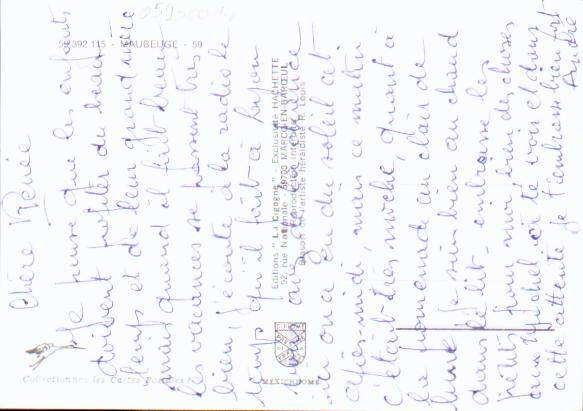 59 392.115 - MAUBEUGE - 59
Chère Renée
Je pense que les enfants
doivent profiter du beau
temps et de leur grand-mère
mais quand il fait beau
les vacances se passent très
bien, j'écoute à la radio le
temps qu'il fait à
ici on a eu du soleil cet
après-midi, mais ce matin
c'était très moche, quant à
la promenade au clair de
lune je suis bien au chaud
dans le lit - embrasse les
petits pour moi bien des choses
à te voir et dans
cette attente je t'embrasse bien fort
André
Editions "La Cigogne" - Exclusivité HACHETTE
92, rue Nationale - 59700 MARCQ-EN-BARŒUL
Reproduction interdite
Blason de l'artiste héraldiste R. Louis
Collectionnez les Cartes Postales
MEXICHROME